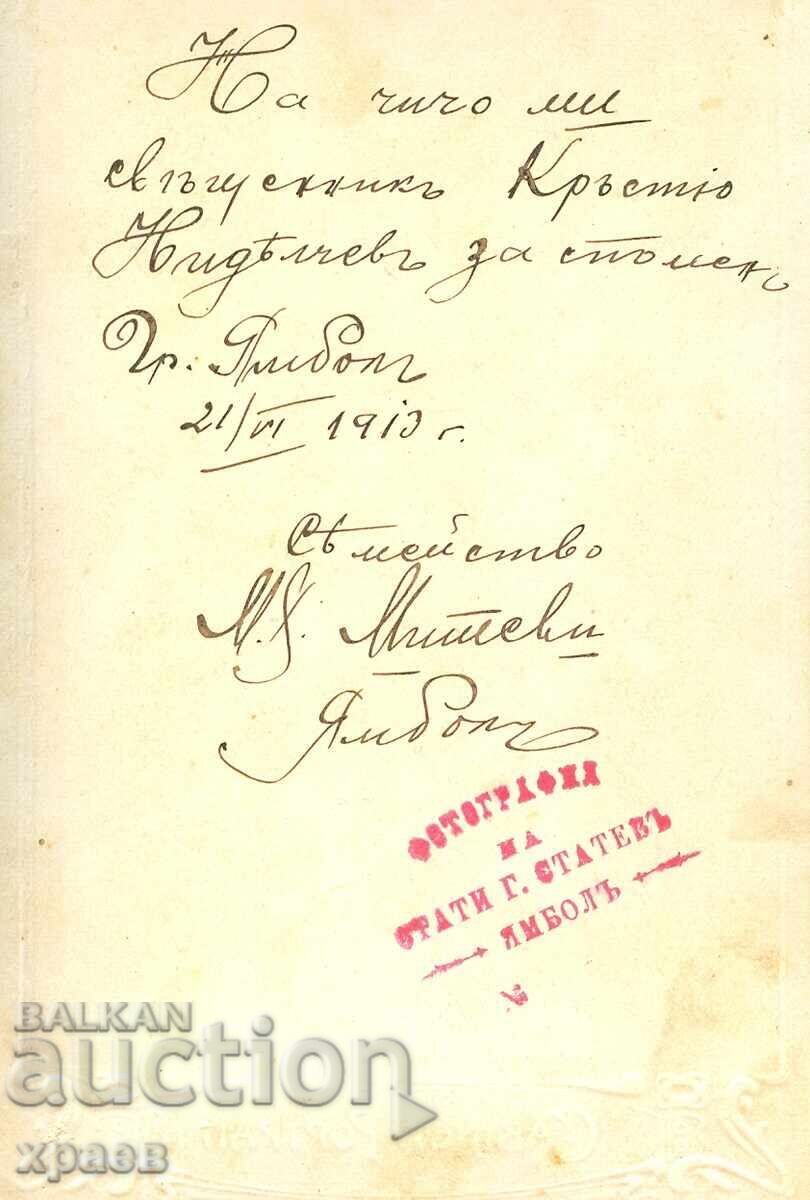 На чичо ми
Кръстю
Нидѣлчевъ за споменъ
Гр. Ямболъ
21/VI 1913 г.
Сѣмейство
М. Х. Митеви
Ямболъ
ФОТОГРАФИЯ
НА
СТАТИ Г. СТАТЕВЪ
ЯМБОЛЪ
BALKAN
auction
храев